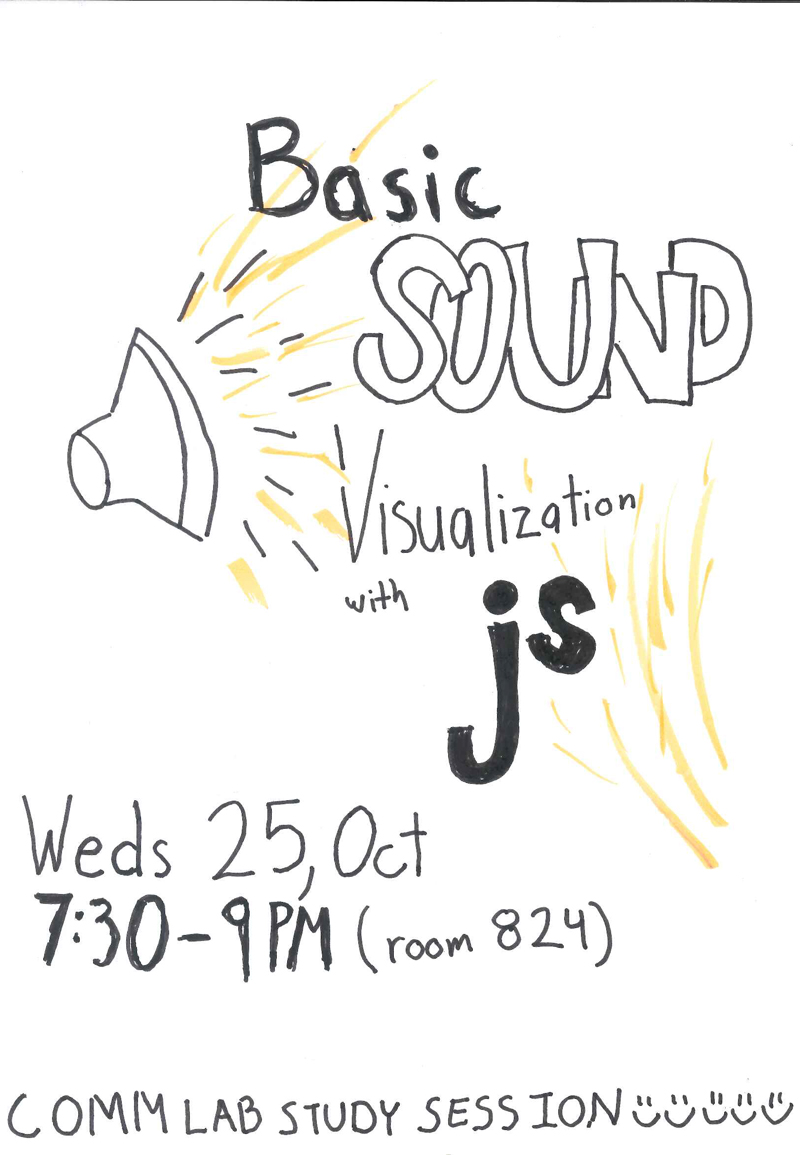 Basic
SOUND
Visualization
with
js
Weds 25, Oct
7:30-9PM (room 824)
COMM LAB STUDY SESSION